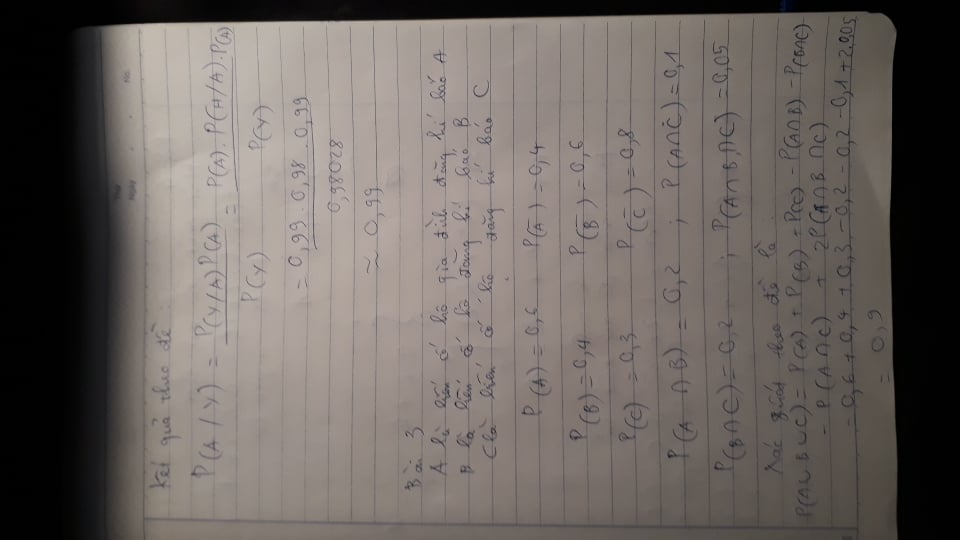 Kết quả theo đề
P(A/Y) = P(Y/A)P(A) / P(Y) = P(A).P(H/A).P(A) / P(Y)
= 0,99.0,98.0,99 / 0,98028
≈ 0,99
Bài 3
A là biến cố hộ gia đình đăng kí báo A
B là biến cố hộ đăng kí báo B
C là biến cố hộ đăng kí báo C
P(A) = 0,6 P(A̅) = 0,4
P(B) = 0,4 P(B̅) = 0,6
P(C) = 0,3 P(C̅) = 0,8
P(A∩B) = 0,2 ; P(A∩C) = 0,1
P(B∩C) = 0,2 ; P(A∩B∩C) = 0,05
Xác suất theo đề là
P(A∪B∪C) = P(A) + P(B) + P(C) - P(A∩B) - P(B∩C)
- P(A∩C) + 2P(A∩B∩C)
= 0,6 + 0,4 + 0,3 - 0,2 - 0,2 - 0,1 + 2.0,05
= 0,9